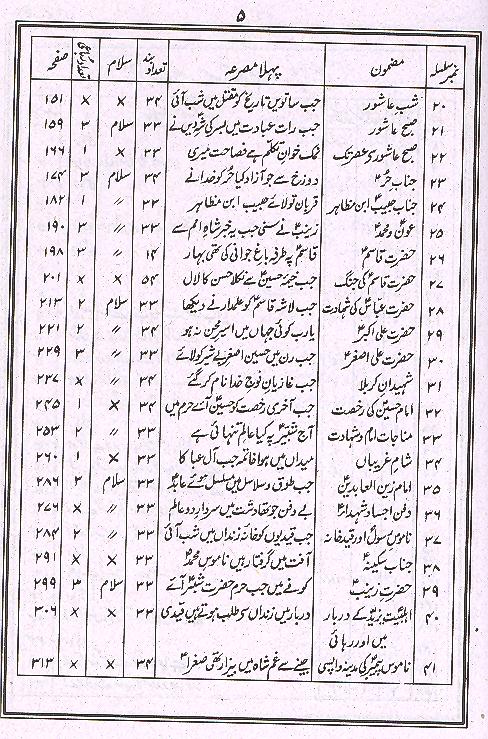 ۵
نمبر سلسلہ مضمون پہلا مصرعہ تعداد بند سلام تعداد رباعی صفحہ
۲۰ شب عاشور جب ساتویں تاریخ کو مقتل میں شب آئی ۳۴ × × ۱۵۱
۲۱ صبح عاشور جب رات عبادت میں بسر کی شہ دیں نے ۳۳ سلام ۳ ۱۵۹
۲۲ صبح عاشور سے عصر تک نمک خوان تکلم ہے فصاحت میری ۳۳ × ۱ ۱۶۶
۲۳ جناب حرؑ دوزخ سے جو آزاد کیا حر کو خدا نے ۳۴ سلام ۳ ۱۷۴
۲۴ جناب حبیب ابن مظاہر قربان تولائے حبیب ابن مظاہر ۳۳ 〃 ۱ ۱۸۲
۲۵ عونؑ و محمدؑ زینبؑ نے سنی جب یہ خبر شاہ امم سے ۳۳ 〃 ۳ ۱۹۰
۲۶ حضرت قاسمؑ قاسمؑ پہ طرفہ باغ جوانی کی تھی بہار ۱۴ 〃 ۳ ۱۹۸
۲۷ حضرت قاسمؑ کی جنگ جب خیمۂ حسینؑ سے نکلا حسن کا لال ۵۴ × × ۲۰۱
۲۸ حضرت عباسؑ کی شہادت جب لاشۂ قاسمؑ کو علمدار نے دیکھا ۳۳ سلام ۲ ۲۱۳
۲۹ حضرت علی اکبرؑ یارب کوئی جہاں میں اسیر محن نہ ہو ۳۴ 〃 ۲ ۲۲۱
۳۰ حضرت علی اصغرؑ جب رن میں حسین اصغر بے شیر کو لائے ۳۳ 〃 ۳ ۲۲۹
۳۱ شہیدان کربلا جب غازیان فوج خدا نام کر گئے ۳۴ 〃 × ۲۳۷
۳۲ امام حسینؑ کی رخصت جب آخری رخصت کو حسینؑ آئے حرم میں ۳۴ × ۱ ۲۴۵
۳۳ مناجات امام و شہادت آج شبیرؑ پہ کیا عالم تنہائی ہے ۳۳ 〃 ۲ ۲۵۳
۳۴ شام غریباں میداں میں ہوا خاتمہ جب آل عبا کا ۳۳ × ۱ ۲۶۰
۳۵ امام زین العابدینؑ جب طوق و سلاسل میں مسلسل ہوئے عابدؑ ۳۳ سلام ۳ ۲۸۶
۳۶ دفن اجساد شہداءؑ بے دفن جو تھا دشت میں سردار دو عالم ۳۳ 〃 × ۲۷۶
۳۷ ناموس رسولؐ اور قید خانہ جب قیدیوں کو خانۂ زنداں میں شب آئی ۳۳ 〃 ۲ ۲۸۴
۳۸ جناب سکینہؑ آفت میں گرفتار ہیں ناموس محمدؐ ۳۳ × × ۲۹۱
۳۹ حضرت زینبؑ کوفے میں جب حرم حضرت شبیرؑ آئے ۳۳ سلام ۳ ۲۹۹
۴۰ اہلبیتؑ یزید کے دربار دربار میں زنداں سے طلب ہوتے ہیں قیدی ۳۳ × × ۳۰۶
میں اور رہائی
۴۱ ناموس پیمبرؐ کی مدینہ واپسی جینے سے غم شاہ میں بیزار تھی صغراؑ ۳۴ × × ۳۱۳